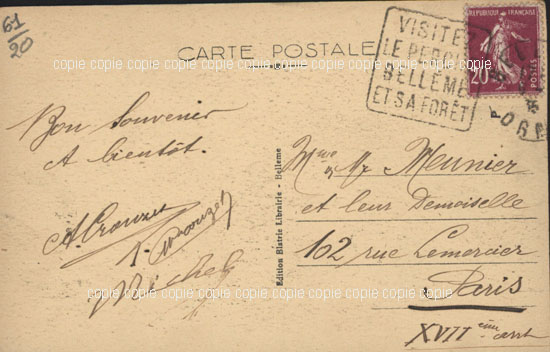 61/20
CARTE POSTALE
VISITEZ
LE PERCHE
BELLÊME
ET SA FORÊT
REPUBLIQUE FRANÇAISE
20
POSTES
ORNE
copie copie copie copie copie copie copie copie copie copie
Bon Souvenir
A bientôt.
Edition Blatrie Librairie - Belleme
Mme & Mr Meunier
et leur Demoiselle
102 rue Lemercier
Paris
XVII ème arrt
copie copie copie copie copie copie copie copie copie copie